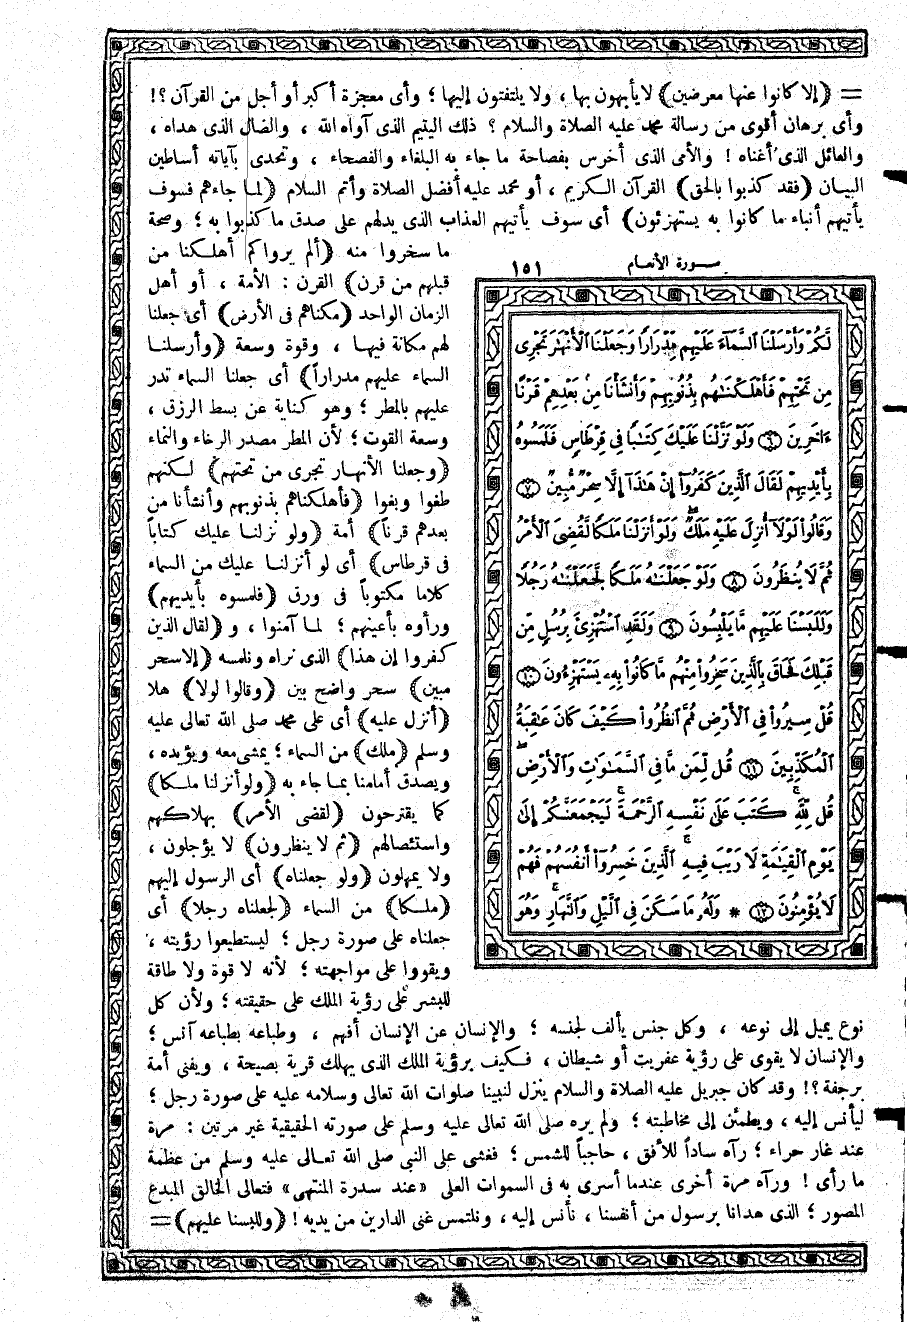 = (إلا كانوا عنها معرضين) لا يأبهون بها ، ولا يلتفتون إليها ؛ وأى معجزة أكبر أو أجل من القرآن ؟!
وأى برهان أقوى من رسالة محمد عليه الصلاة والسلام ؟ ذلك اليتيم الذى آواه الله ، والضال الذى هداه ،
والعائل الذى أغناه ! والأمى الذى أخرس بفصاحة ما جاء به البلغاء والفصحاء ، وتحدى بآياته أساطين
البيان (فقد كذبوا بالحق) القرآن الكريم ، أو محمد عليه أفضل الصلاة وأتم السلام (لما جاءهم فسوف
يأتيهم أنباء ما كانوا به يستهزئون) أى سوف يأتيهم العذاب الذى يدلهم على صدق ما كذبوا به ؛ وصحة
ما سخروا منه (ألم يروا كم أهلكنا من
قبلهم من قرن) القرن : الأمة ، أو أهل
الزمان الواحد (مكناهم فى الأرض) أى جعلنا
لهم مكانة فيها ، وقوة وسعة (وأرسلنا
السماء عليهم مدراراً) أى جعلنا السماء تدر
عليهم بالمطر ؛ وهو كناية عن بسط الرزق ،
وسعة القوت ؛ لأن المطر مصدر الرخاء والنماء
(وجعلنا الأنهار تجرى من تحتهم) لكنهم
طغوا وبغوا (فأهلكناهم بذنوبهم وأنشأنا من
بعدهم قرناً) أمة (ولو نزلنا عليك كتاباً
فى قرطاس) أى لو أنزلنا عليك من السماء
كلاما مكتوباً فى ورق (فلمسوه بأيديهم)
ورأوه بأعينهم ؛ لما آمنوا ، و (لقال الذين
كفروا إن هذا) الذى نراه ونلمسه (إلا سحر
مبين) سحر واضح بين (وقالوا لولا) هلا
(أنزل عليه) أى على محمد صلى الله تعالى عليه
وسلم (ملك) من السماء ؛ يمشى معه ويؤيده ،
ويصدق أمامنا بما جاء به (ولو أنزلنا ملكا)
كما يقترحون (لقضى الأمر) بهلاكهم
واستئصالهم (ثم لا ينظرون) لا يؤجلون ،
ولا يمهلون (ولو جعلناه) أى الرسول إليهم
(ملكا) من السماء (لجعلناه رجلا) أى
جعلناه على صورة رجل ؛ ليستطيعوا رؤيته ،
ويقووا على مواجهته ؛ لأنه لا قوة ولا طاقة
للبشر على رؤية الملك على حقيقته ؛ ولأن كل
سورة الأنعام ١٥١
لَّكُمْ وَأَرْسَلْنَا السَّمَآءَ عَلَيْهِم مِّدْرَارًا وَجَعَلْنَا الْأَنْهَٰرَ تَجْرِى
مِن تَحْتِهِمْ فَأَهْلَكْنَٰهُم بِذُنُوبِهِمْ وَأَنشَأْنَا مِنۢ بَعْدِهِمْ قَرْنًا
ءَاخَرِينَ ٦ وَلَوْ نَزَّلْنَا عَلَيْكَ كِتَٰبًا فِى قِرْطَاسٍ فَلَمَسُوهُ
بِأَيْدِيهِمْ لَقَالَ الَّذِينَ كَفَرُوٓا۟ إِنْ هَٰذَآ إِلَّا سِحْرٌ مُّبِينٌ ٧
وَقَالُوا۟ لَوْلَآ أُنزِلَ عَلَيْهِ مَلَكٌ ۖ وَلَوْ أَنزَلْنَا مَلَكًا لَّقُضِىَ الْأَمْرُ
ثُمَّ لَا يُنظَرُونَ ٨ وَلَوْ جَعَلْنَٰهُ مَلَكًا لَّجَعَلْنَٰهُ رَجُلًا
وَلَلَبَسْنَا عَلَيْهِم مَّا يَلْبِسُونَ ٩ وَلَقَدِ اسْتُهْزِئَ بِرُسُلٍ مِّن
قَبْلِكَ فَحَاقَ بِالَّذِينَ سَخِرُوا۟ مِنْهُم مَّا كَانُوا۟ بِهِۦ يَسْتَهْزِءُونَ ١٠
قُلْ سِيرُوا۟ فِى الْأَرْضِ ثُمَّ انظُرُوا۟ كَيْفَ كَانَ عَٰقِبَةُ
الْمُكَذِّبِينَ ١١ قُل لِّمَن مَّا فِى السَّمَٰوَٰتِ وَالْأَرْضِ ۖ
قُل لِّلَّهِ ۚ كَتَبَ عَلَىٰ نَفْسِهِ الرَّحْمَةَ ۚ لَيَجْمَعَنَّكُمْ إِلَىٰ
يَوْمِ الْقِيَٰمَةِ لَا رَيْبَ فِيهِ ۚ الَّذِينَ خَسِرُوٓا۟ أَنفُسَهُمْ فَهُمْ
لَا يُؤْمِنُونَ ١٢ * وَلَهُۥ مَا سَكَنَ فِى الَّيْلِ وَالنَّهَارِ ۚ وَهُوَ
نوع يميل إلى نوعه ، وكل جنس يألف لجنسه ؛ والإنسان عن الإنسان أفهم ، وطباعه بطباعه آنس ؛
والإنسان لا يقوى على رؤية عفريت أو شيطان ، فكيف برؤية الملك الذى يهلك قرية بصيحة ، ويفنى أمة
برجفة ؟! وقد كان جبريل عليه الصلاة والسلام ينزل لنبينا صلوات الله تعالى وسلامه عليه على صورة رجل ؛
ليأنس إليه ، ويطمئن إلى مخاطبته ؛ ولم يره صلى الله تعالى عليه وسلم على صورته الحقيقية غير مرتين : مرة
عند غار حراء ؛ رآه ساداً للأفق ، حاجباً للشمس ؛ فغشى على النبى صلى الله تعالى عليه وسلم من عظمة
ما رأى ! ورآه مرة أخرى عندما أسرى به فى السموات العلى «عند سدرة المنتهى» فتعالى الخالق المبدع
المصور ؛ الذى هدانا برسول من أنفسنا ، نأنس إليه ، ونلتمس غنى الدارين من يديه ! (وللبسنا عليهم) =